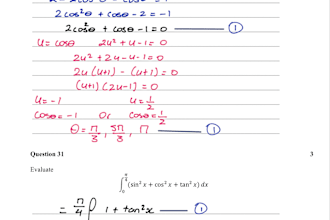 2cos²θ + cosθ - 2 = -1
2cos²θ + cosθ - 1 = 0 — ①
u = cosθ 2u² + u - 1 = 0
2u² + 2u - u - 1 = 0
2u (u+1) - (u+1) = 0
(u+1)(2u-1) = 0
u = -1 u = 1/2
cosθ = -1 Or cosθ = 1/2
θ = π/3, 5π/3, π — ①
Question 31 3
Evaluate
∫₀^(π/4) (sin² x + cos² x + tan² x) dx
= π/4 ∫ 1 + tan²x — ①